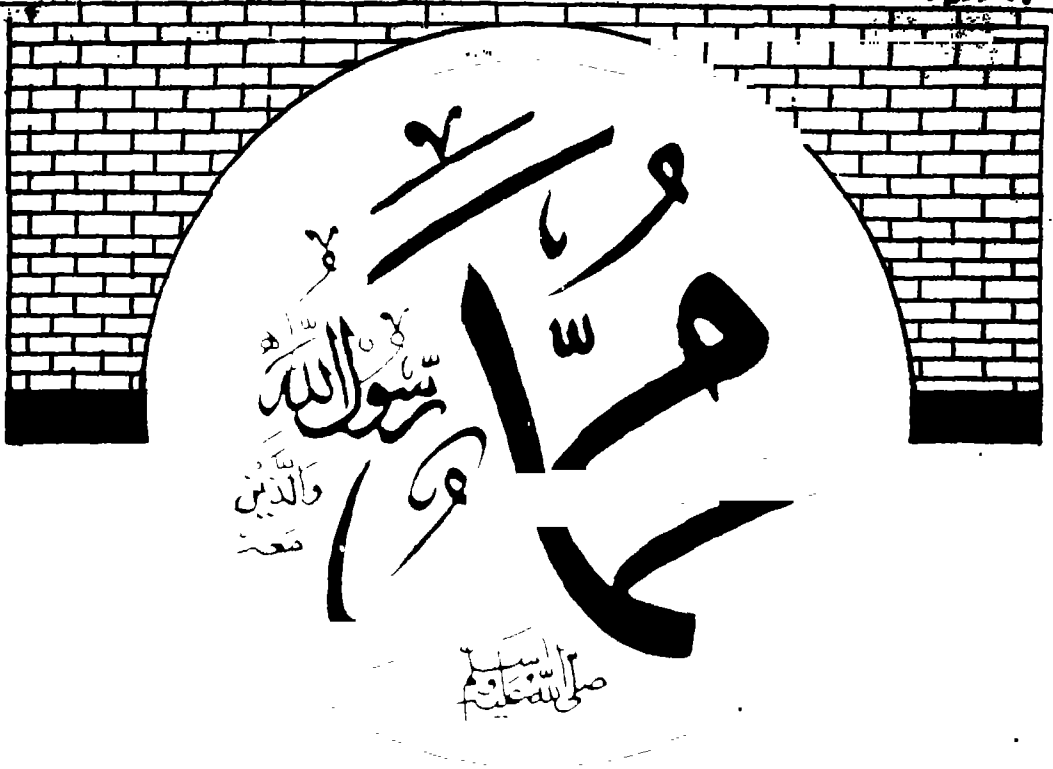 رَّسُوْلُ اللّٰهِ
وَالَّذِيْنَ
مَعَهٗ
صلّى الله عليه وسلّم